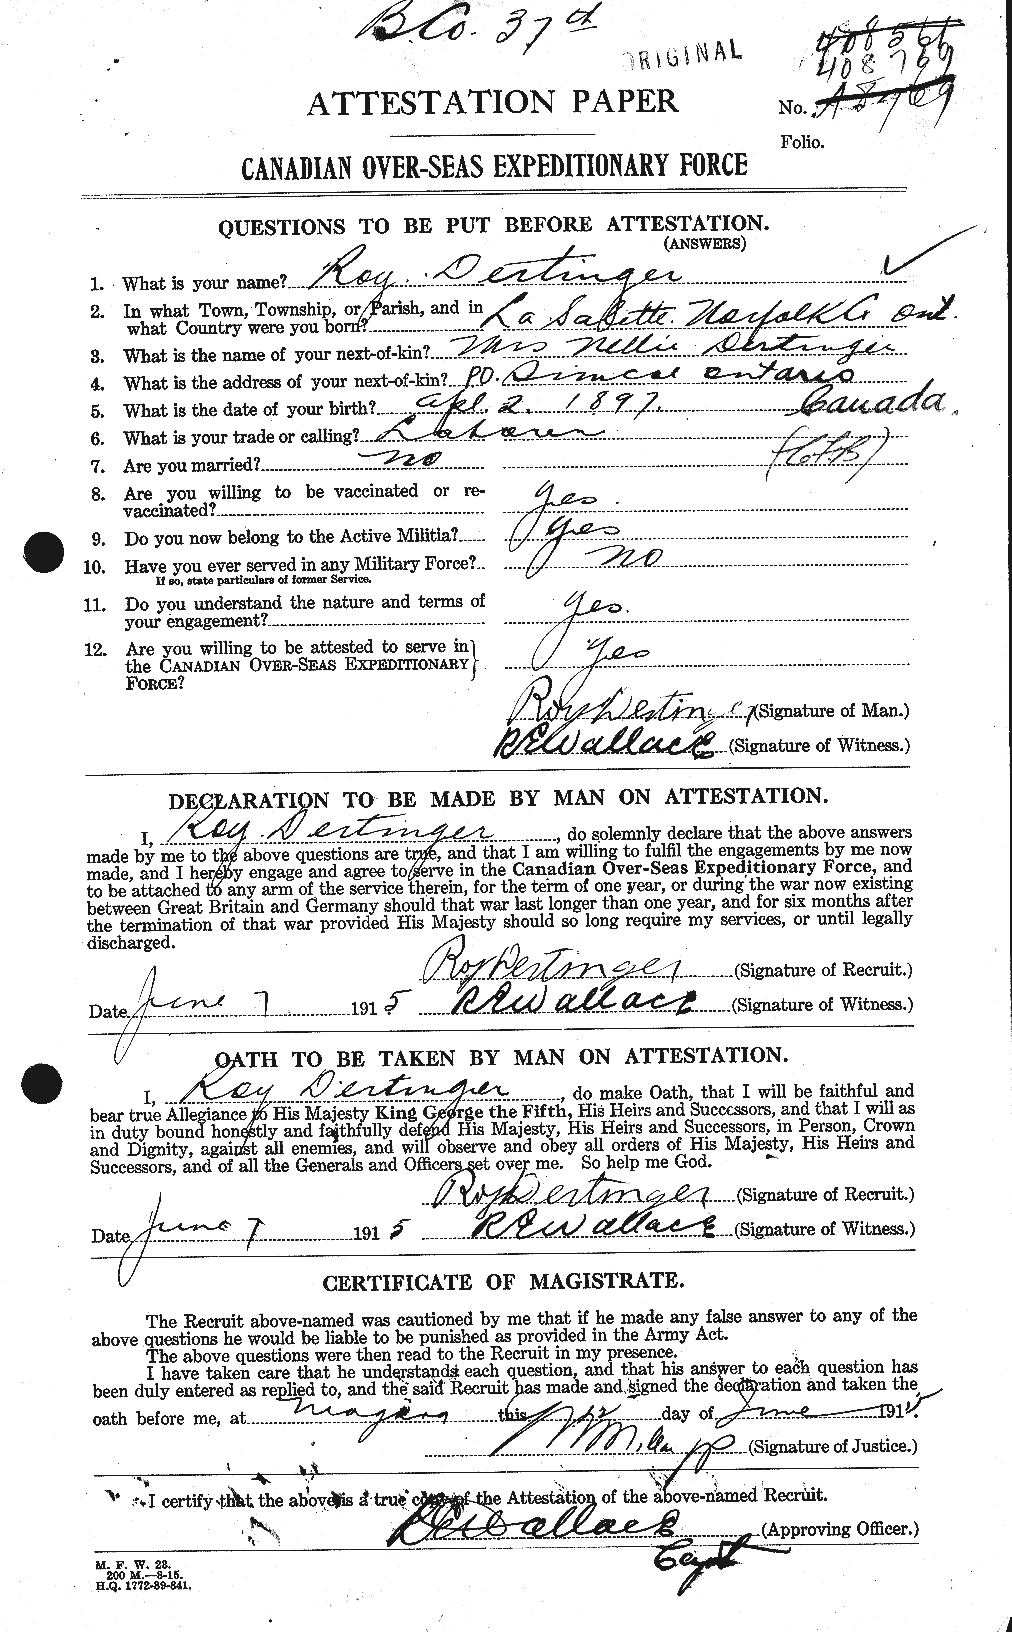 B Co. 37th
ORIGINAL
408566
408769
ATTESTATION PAPER
No. A8769
Folio.
CANADIAN OVER-SEAS EXPEDITIONARY FORCE
QUESTIONS TO BE PUT BEFORE ATTESTATION.
(ANSWERS)
1. What is your name? Roy Dertinger
2. In what Town, Township, or Parish, and in
what Country were you born? La Salette Norfolk Co Ont.
3. What is the name of your next-of-kin? Mrs Nellie Dertinger
4. What is the address of your next-of-kin? P.O. Simcoe Ontario
5. What is the date of your birth? Apl. 2. 1897. Canada.
6. What is your trade or calling? Laborer
7. Are you married? No
8. Are you willing to be vaccinated or re-
vaccinated? Yes.
9. Do you now belong to the Active Militia? Yes
10. Have you ever served in any Military Force? No
If so, state particulars of former Service.
11. Do you understand the nature and terms of
your engagement? Yes.
12. Are you willing to be attested to serve in
the CANADIAN OVER-SEAS EXPEDITIONARY Yes
FORCE?
Roy Dertinger (Signature of Man.)
R E Wallace (Signature of Witness.)
DECLARATION TO BE MADE BY MAN ON ATTESTATION.
I, Roy Dertinger, do solemnly declare that the above answers
made by me to the above questions are true, and that I am willing to fulfil the engagements by me now
made, and I hereby engage and agree to serve in the Canadian Over-Seas Expeditionary Force, and
to be attached to any arm of the service therein, for the term of one year, or during the war now existing
between Great Britain and Germany should that war last longer than one year, and for six months after
the termination of that war provided His Majesty should so long require my services, or until legally
discharged.
Roy Dertinger (Signature of Recruit.)
Date June 7 1915 R E Wallace (Signature of Witness.)
OATH TO BE TAKEN BY MAN ON ATTESTATION.
I, Roy Dertinger, do make Oath, that I will be faithful and
bear true Allegiance to His Majesty King George the Fifth, His Heirs and Successors, and that I will as
in duty bound honestly and faithfully defend His Majesty, His Heirs and Successors, in Person, Crown
and Dignity, against all enemies, and will observe and obey all orders of His Majesty, His Heirs and
Successors, and of all the Generals and Officers set over me. So help me God.
Roy Dertinger (Signature of Recruit.)
Date June 7 1915 R E Wallace (Signature of Witness.)
CERTIFICATE OF MAGISTRATE.
The Recruit above-named was cautioned by me that if he made any false answer to any of the
above questions he would be liable to be punished as provided in the Army Act.
The above questions were then read to the Recruit in my presence.
I have taken care that he understands each question, and that his answer to each question has
been duly entered as replied to, and the said Recruit has made and signed the declaration and taken the
oath before me, at Niagara this day of June 1915.
(Signature of Justice.)
I certify that the above is a true copy of the Attestation of the above-named Recruit.
R E Wallace (Approving Officer.)
Capt
M. F. W. 23.
200 M.—3-15.
H.Q. 1772-39-841.